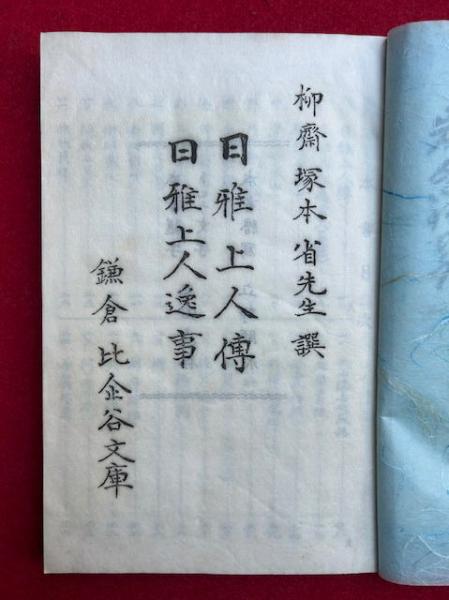 柳齋塚本省先生譔
日雅上人傳
日雅上人逸事
鎌倉比企谷文庫